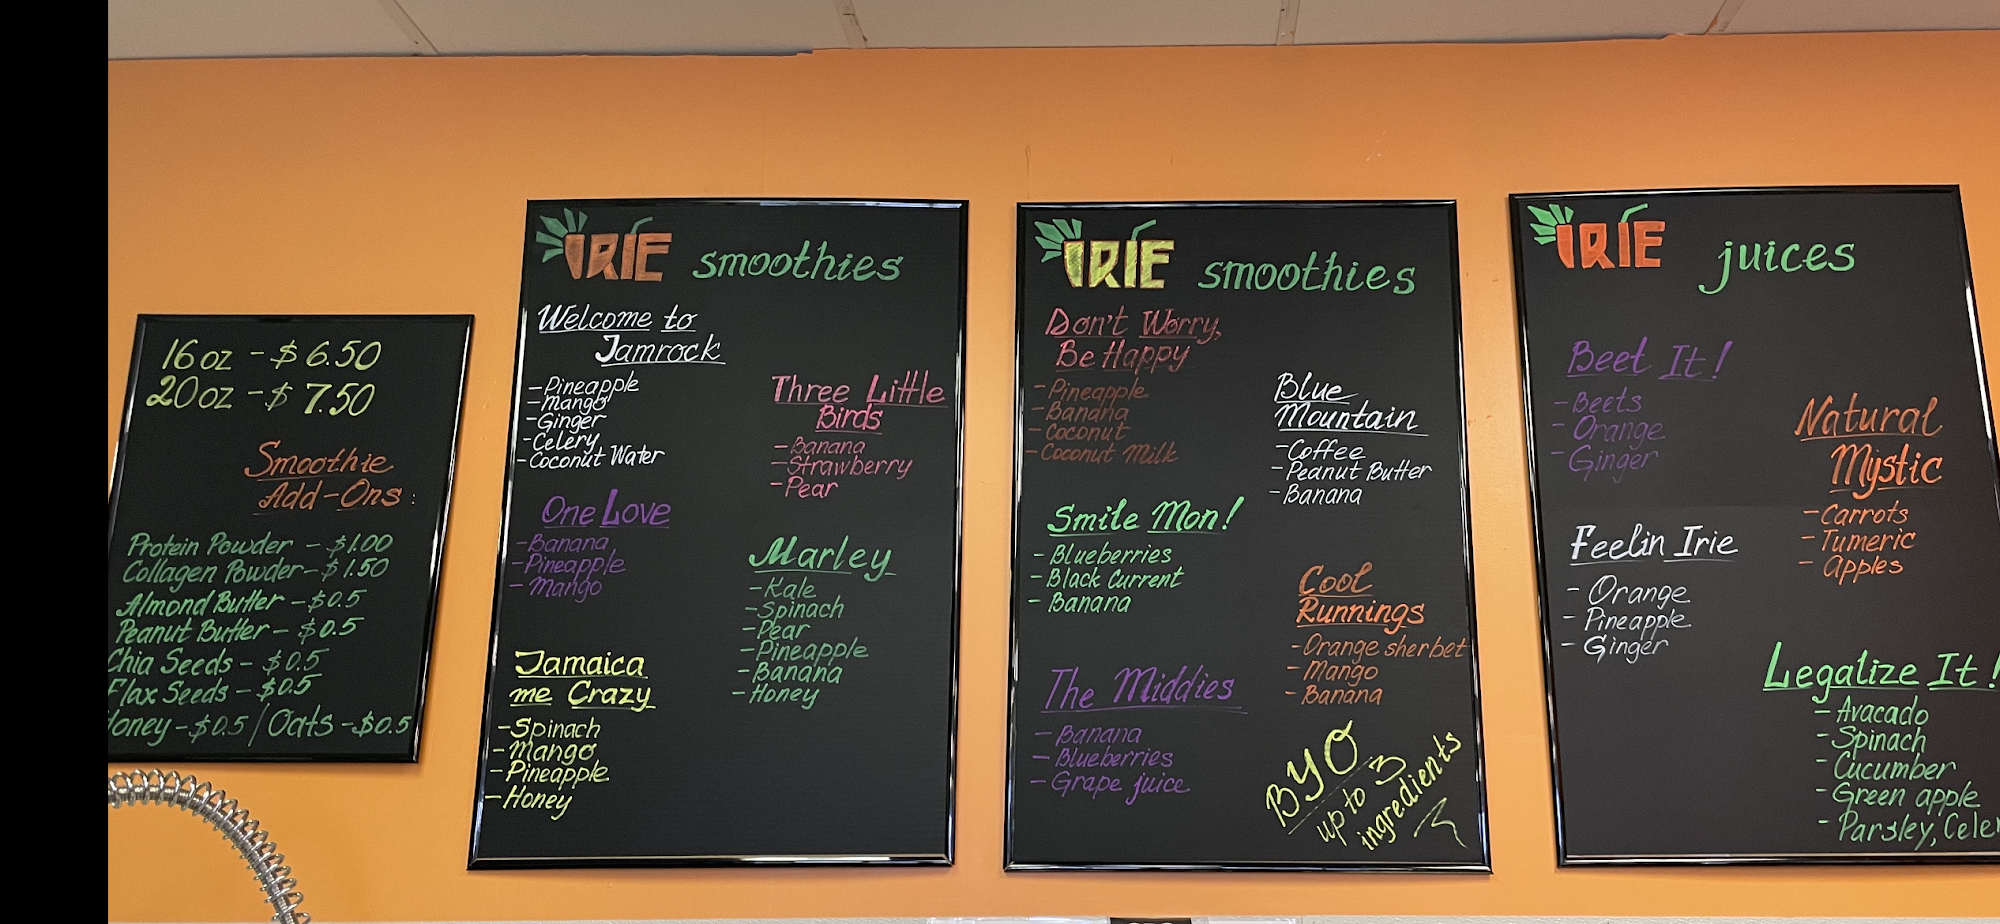 16oz - $6.50
20oz - $7.50
Smoothie
Add-Ons:
Protein Powder - $1.00
Collagen Powder - $1.50
Almond Butter - $0.5
Peanut Butter - $0.5
Chia Seeds - $0.5
Flax Seeds - $0.5
Honey - $0.5 / Oats - $0.5
IRIE smoothies
Welcome to
Jamrock
- Pineapple
- Mango
- Ginger
- Celery
- Coconut Water
One Love
- Banana
- Pineapple
- Mango
Jamaica
me Crazy
- Spinach
- Mango
- Pineapple
- Honey
Three Little
Birds
- Banana
- Strawberry
- Pear
Marley
- Kale
- Spinach
- Pear
- Pineapple
- Banana
- Honey
IRIE smoothies
Don't Worry,
Be Happy
- Pineapple
- Banana
- Coconut
- Coconut Milk
Smile Mon!
- Blueberries
- Black Current
- Banana
The Middies
- Banana
- Blueberries
- Grape juice
Blue
Mountain
- Coffee
- Peanut Butter
- Banana
Cool
Runnings
- Orange sherbet
- Mango
- Banana
BYO
up to 3
ingredients
IRIE juices
Beet It!
- Beets
- Orange
- Ginger
Feelin Irie
- Orange
- Pineapple
- Ginger
Natural
Mystic
- Carrots
- Tumeric
- Apples
Legalize It!
- Avacado
- Spinach
- Cucumber
- Green apple
- Parsley,